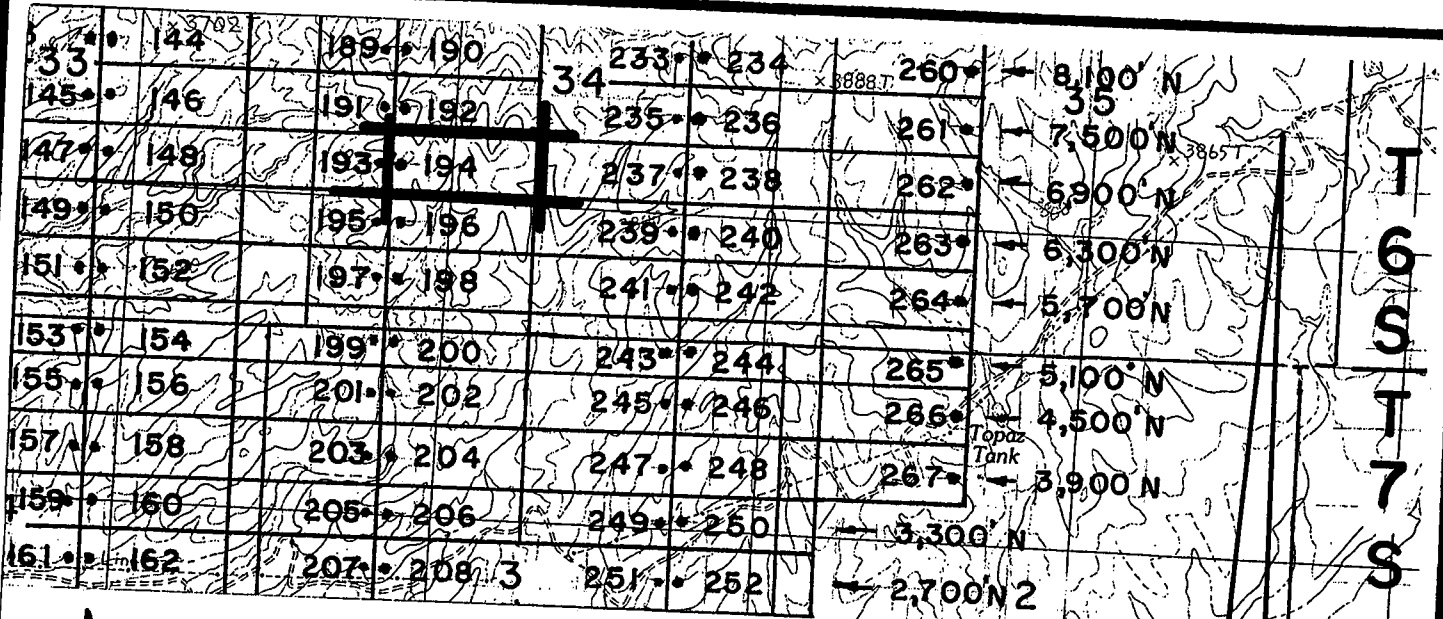 × 3702
33 144 189 190 34 233 234 × 3888T 260 8,100' N
35
145 146 191 192 235 236 261 7,500'N
× 3865T
147 148 193 194 237 238 262 6,900'N
149 150 195 196 239 240 263 6,300'N
151 152 197 198 241 242 264 5,700'N
153 154 199 200 243 244 265 5,100' N
155 156 201 202 245 246 266 4,500'N
Topaz
Tank
157 158 203 204 247 248 267 3,900 N
159 160 205 206 249 250 3,300' N
161 162 207 208 3 251 252 2,700'N 2
T
6
S
T
7
S